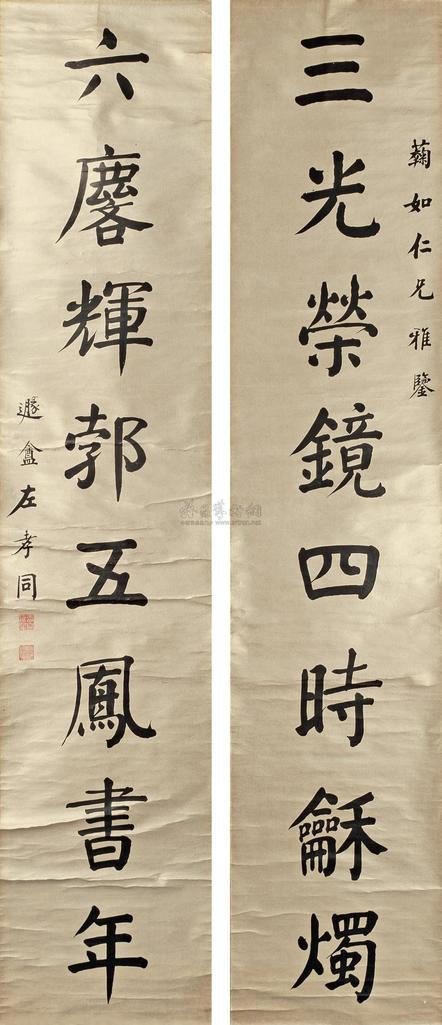 蘜如仁兄雅鑒
三光榮鏡四時龢燭
六麐輝郭五鳳書年
遯盦左孝同
www.artron.net